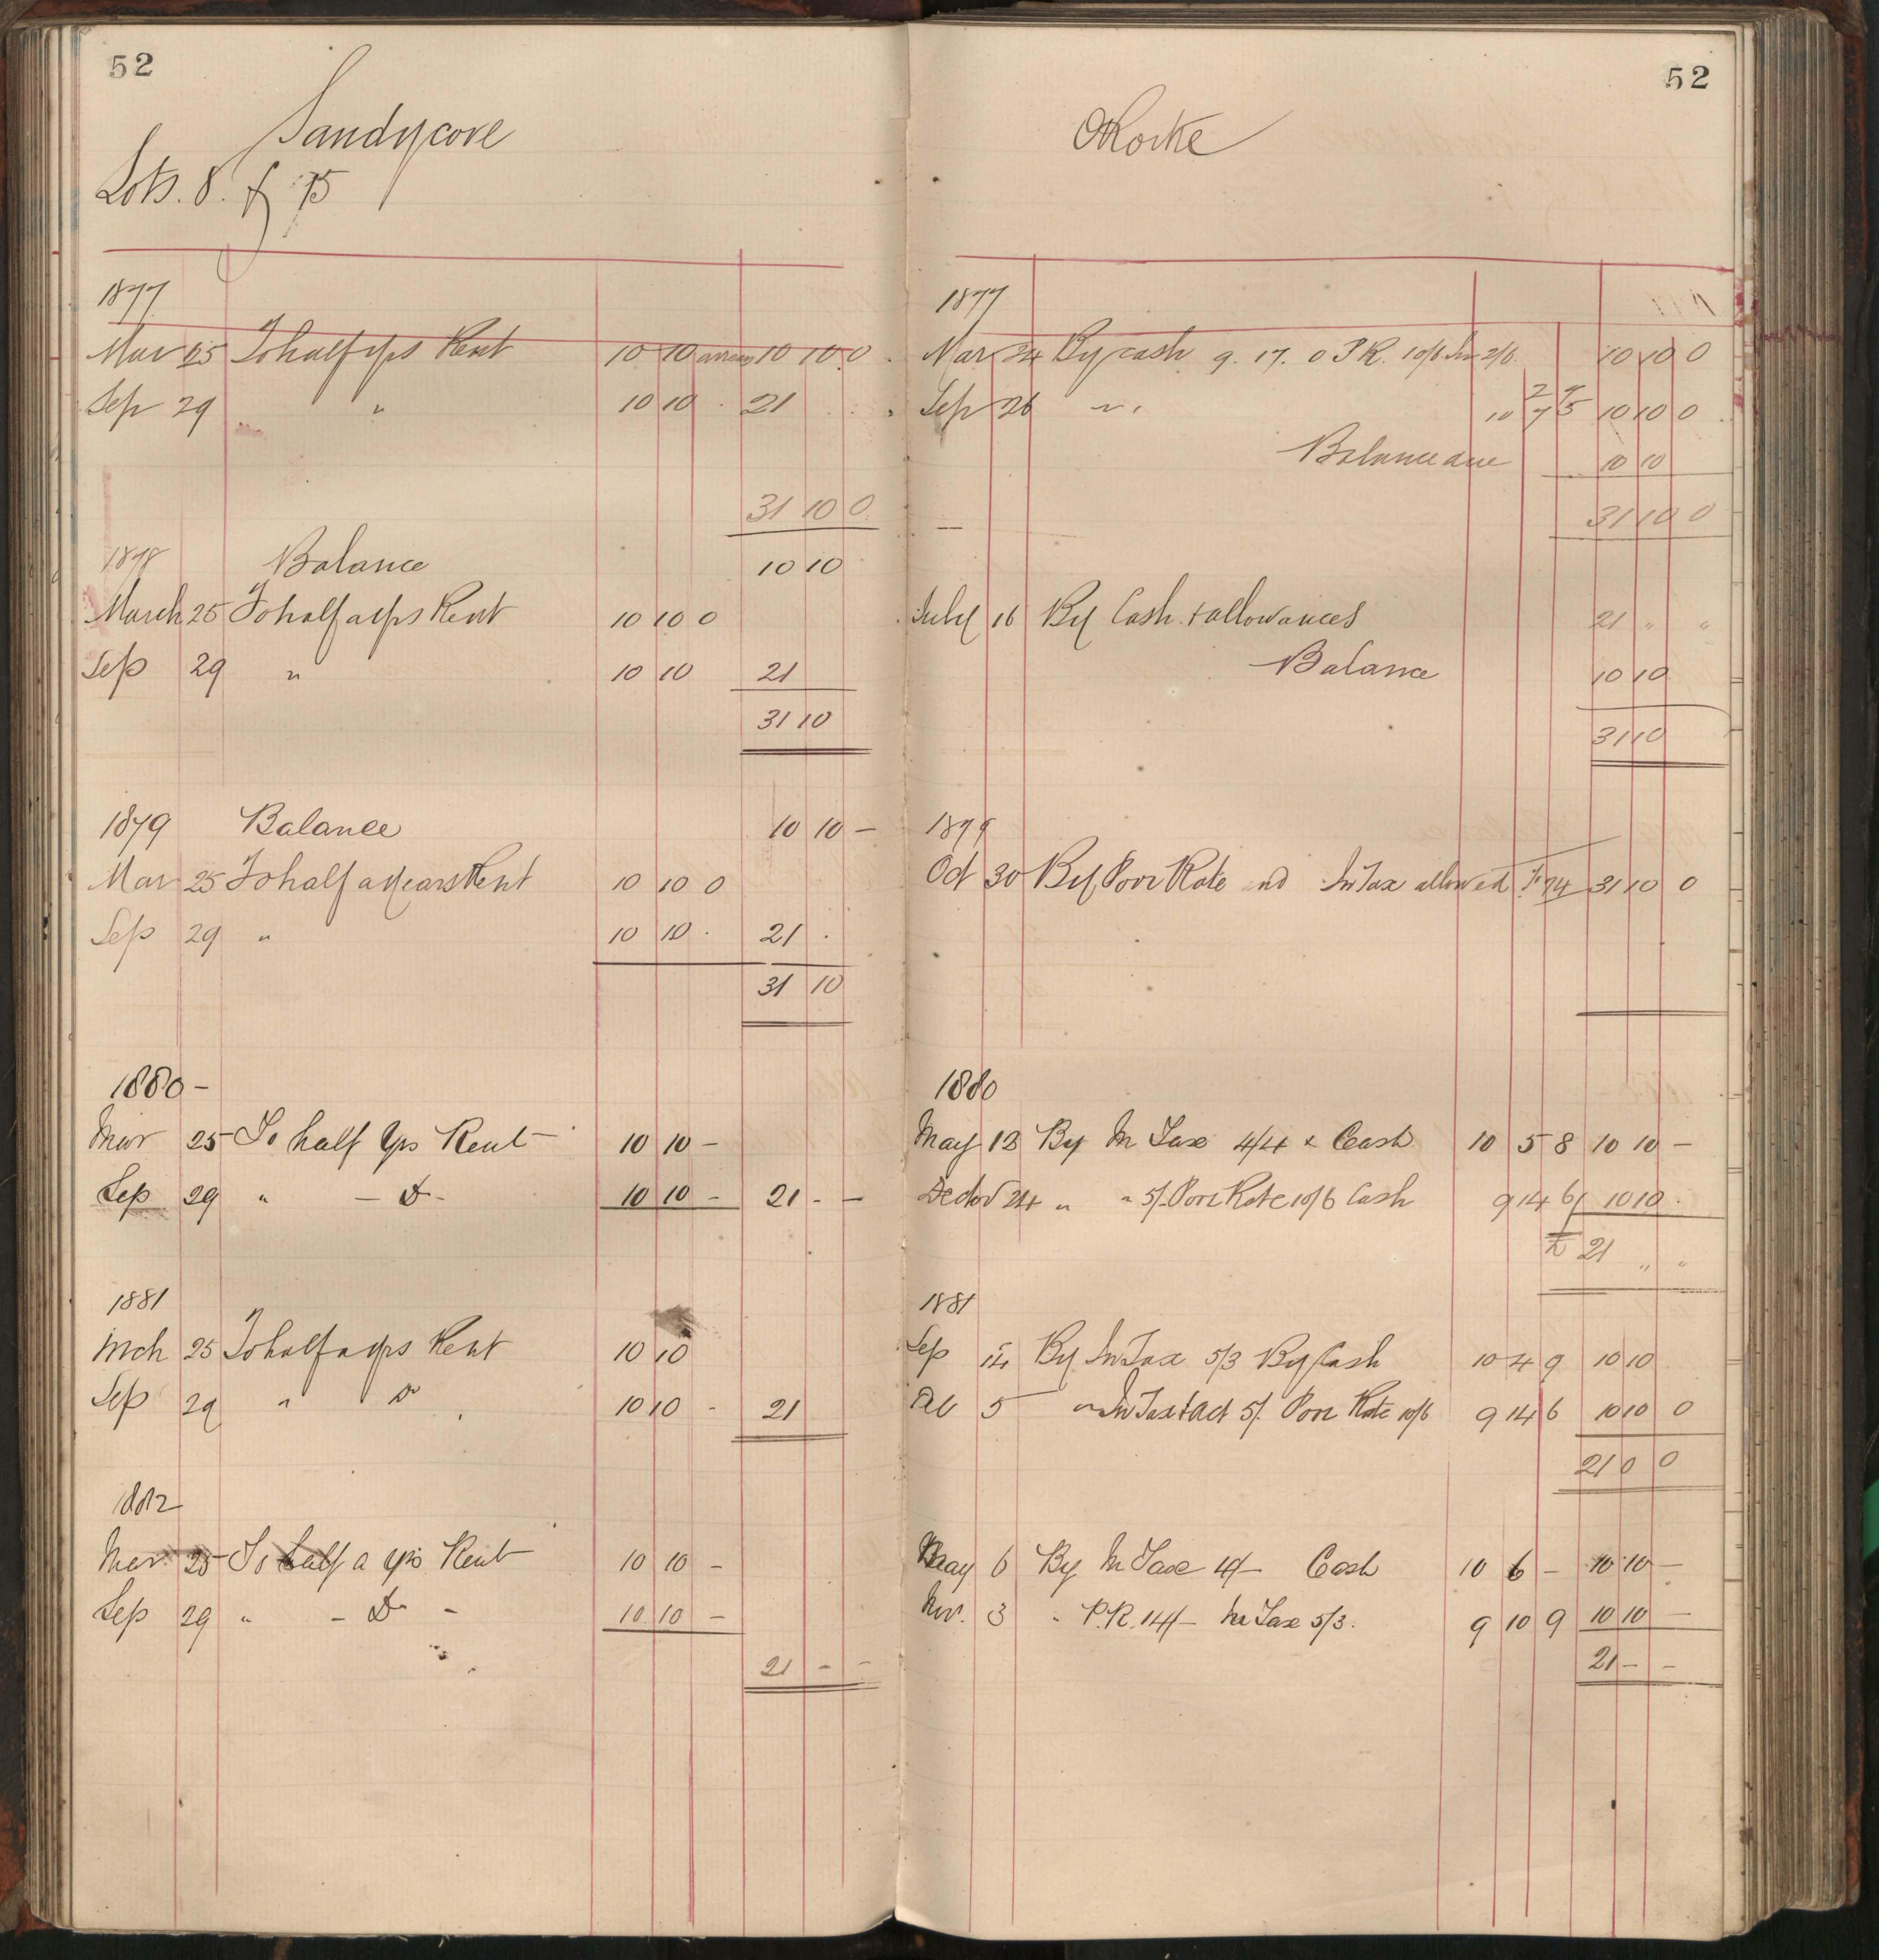 52
Sandycove
Lots. 8. of 15
1877
Mar 25 To half yrs Rent 10 10 arrears 10 10 0
Sep 29 " 10 10 . 21
31 10 0
1878 Balance 10 10
March 25 To half a yrs Rent 10 10 0
Sep 29 " 10 10 21
31 10
1879 Balance 10 10 -
Mar 25 To half a Years Rent 10 10 0
Sep 29 " 10 10 . 21 .
31 10
1880 -
Mar 25 To half Yrs Rent - 10 10 -
Sep 29 " - Do - 10 10 - 21 - -
1881
Mch 25 To half a yrs Rent 10 10
Sep 29 " Do 10 10 - 21
1882
Mar 25 To half a yrs Rent 10 10 -
Sep 29 " - Do - 10 10 -
21 - -
52
ORorke
1877
Mar 24 By cash 9. 17. 0 P R. 10/6 In 2/6 10 10 0
Sep 26 " 10 7 5 10 10 0
Balance due 10 10
31 10 0
July 16 By Cash + allowances 21 " "
Balance 10 10
31 10
1879
Oct 30 By Poor Rate and In Tax allowed 31 10 0
1880
May 12 By In Tax 4/4 & Cash 10 5 8 10 10 -
24 " " 5/- Poor Rate 10/6 Cash 9 14 6 10 10 .
£ 21 " "
1881
Sep 14 By In Tax 5/3 By Cash 10 4 9 10 10
5 " In Tax 5/. Poor Rate 10/6 9 14 6 10 10 0
21 0 0
May 6 By In Tax 4/- Cash 10 6 - 10 10 -
Nov. 3 " P.R. 14/- In Tax 5/3. 9 10 9 10 10 -
21 - -